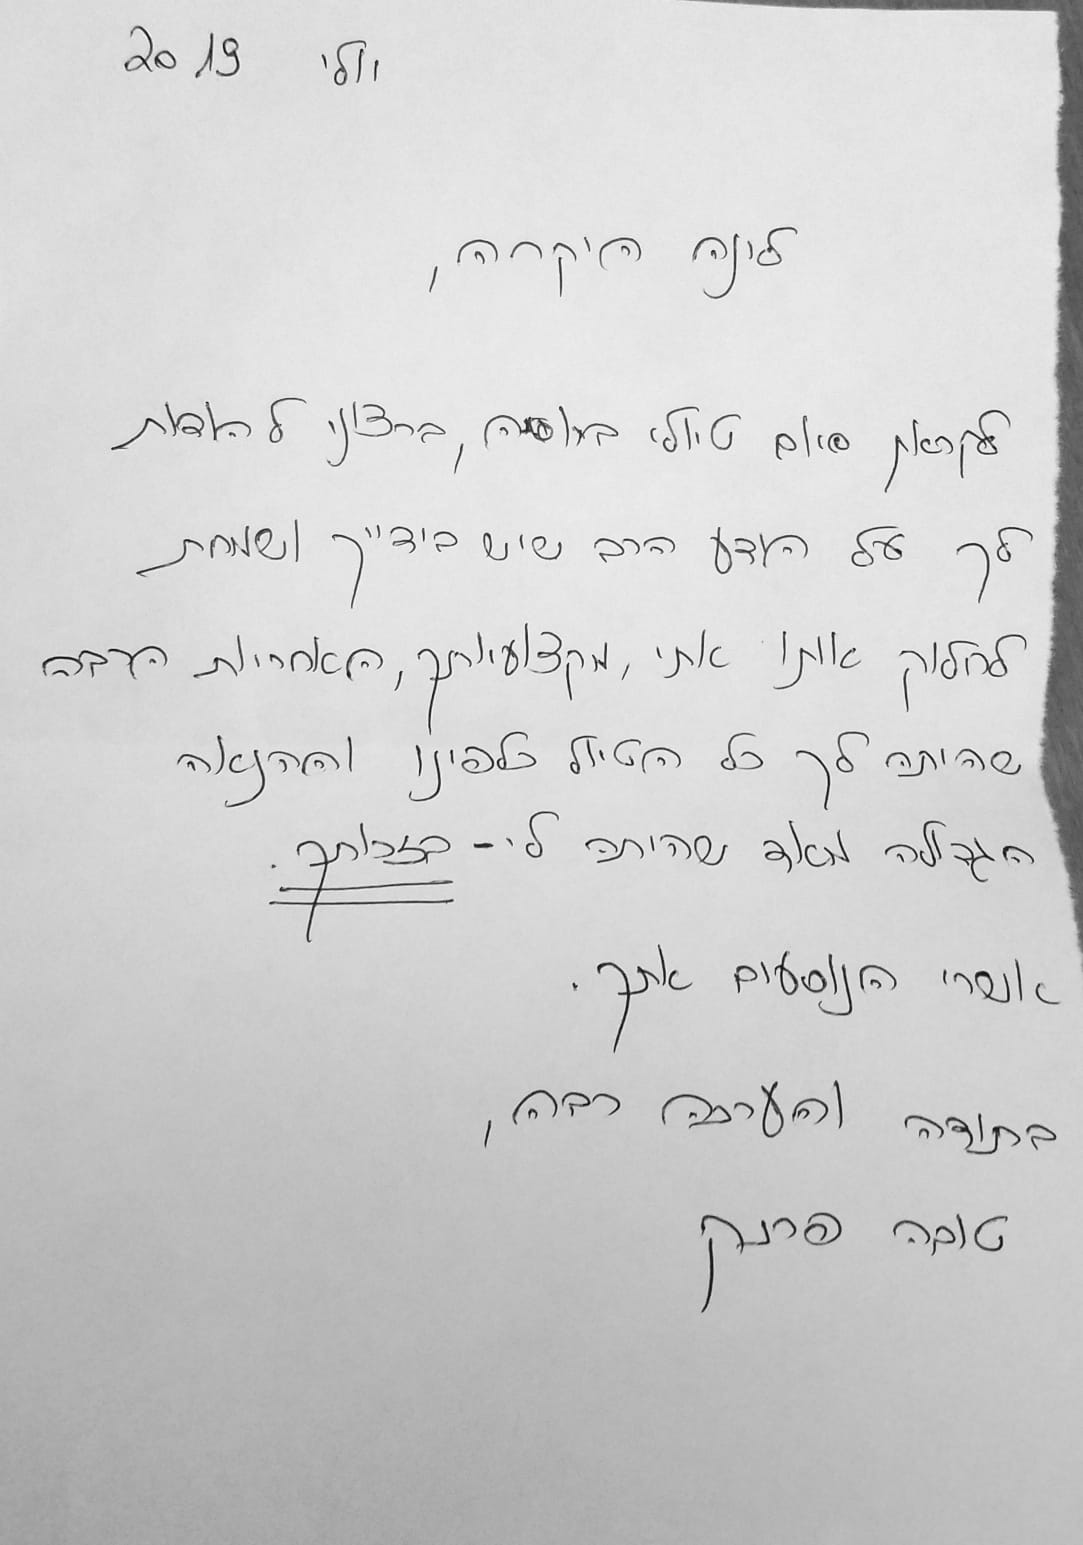 יולי 2019
לינה היקרה,
לקראת סיום טיולי ברוסיה, ברצוני להודות
לך על הידע הרב שיש בידייך ושמחת
לחלוק אותו אתי, מקצועיותך, האחריות הרבה
שהיתה לך כל הטיול כלפינו וההנאה
הגדולה מאד שהיתה לי - בזכותך.
אושרי הנוסעים אתך.
בתודה והערכה רבה,
טובה פרנק